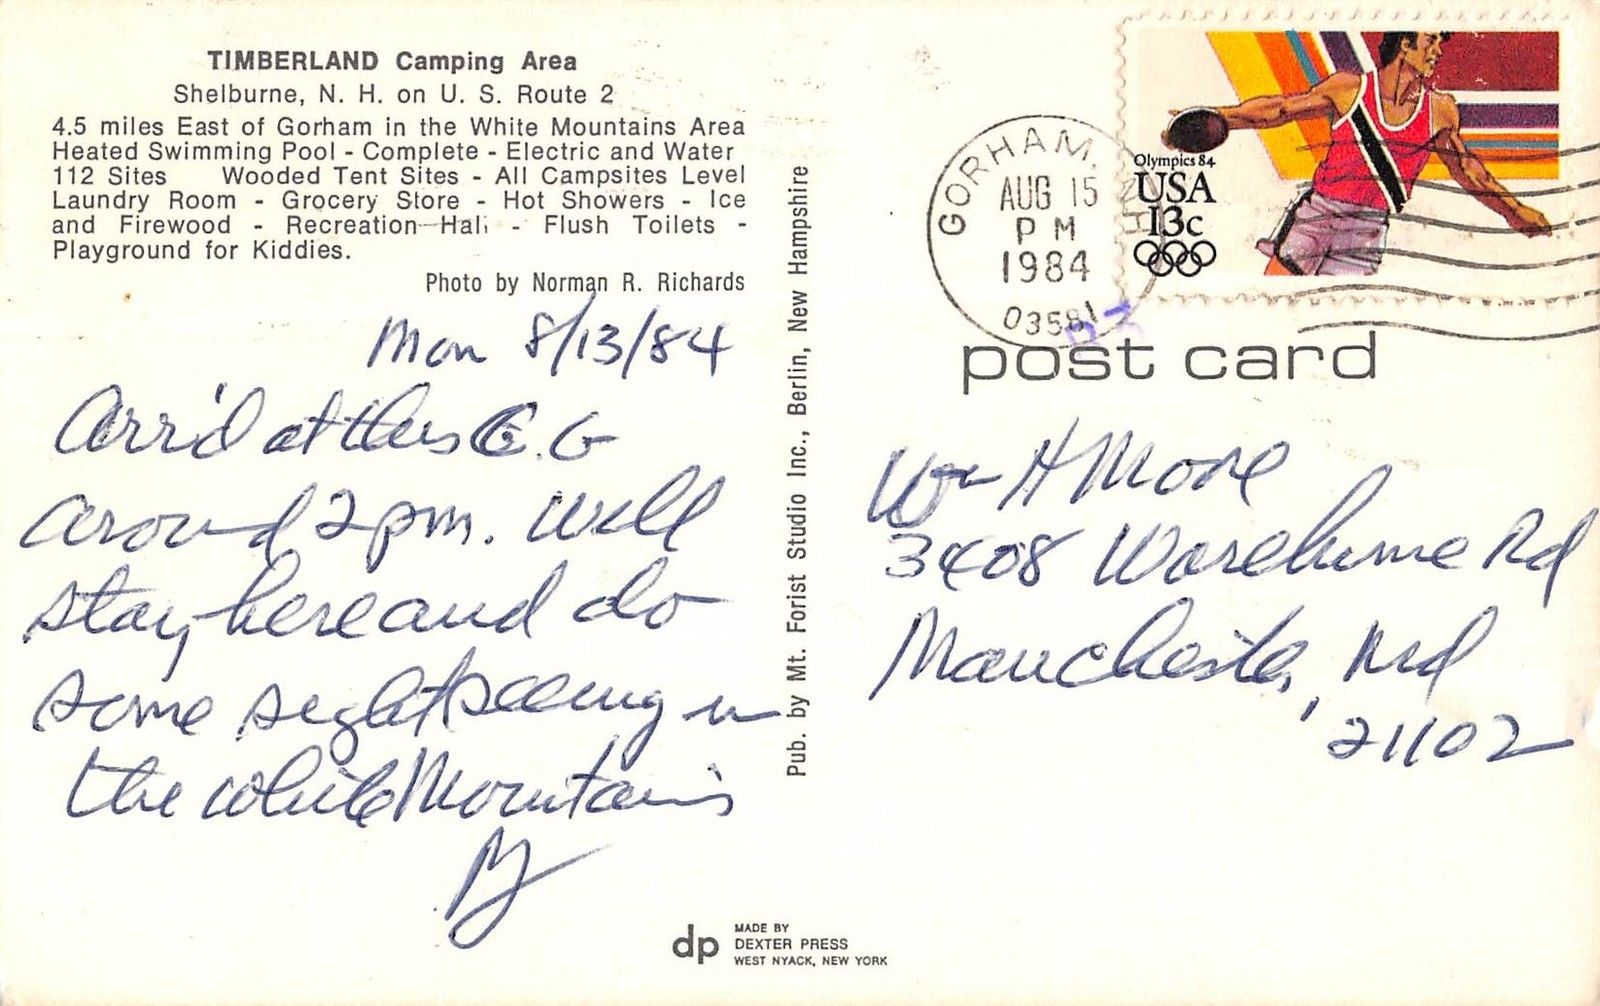 TIMBERLAND Camping Area
Shelburne, N. H. on U. S. Route 2
4.5 miles East of Gorham in the White Mountains Area
Heated Swimming Pool - Complete - Electric and Water
112 Sites Wooded Tent Sites - All Campsites Level
Laundry Room - Grocery Store - Hot Showers - Ice
and Firewood - Recreation Hall - Flush Toilets -
Playground for Kiddies.
Photo by Norman R. Richards
Mon 8/13/84
Arr'd at this C.G
around 2 pm. Will
stay here and do
some sightseeing in
the White Mountains
Pub. by Mt. Forist Studio Inc., Berlin, New Hampshire
MADE BY
dp DEXTER PRESS
WEST NYACK, NEW YORK
GORHAM, NH
AUG 15
PM
1984
03581
Olympics 84
USA
13c
post card
Wm H Moore
3408 Warehime Rd
Manchester, Md
21102